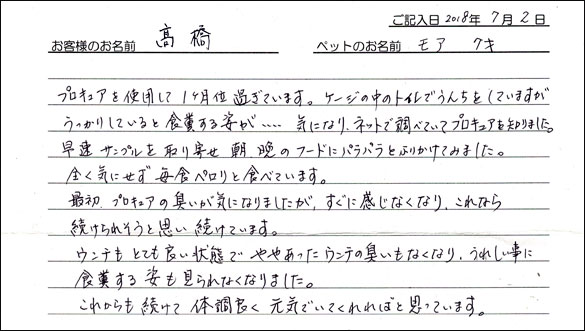 ご記入日 2018年 7月 2日
お客様のお名前 髙橋 ペットのお名前 モア クキ
プロキュアを使用して 1ヶ月位 過ぎています。ケージの中のトイレでうんちをしていますが
うっかりしていると 食糞する姿が‥‥ 気になり、ネットで調べていてプロキュアを知りました。
早速 サンプルを 取り寄せ 朝、晩の フードに パラパラと ふりかけてみました。
全く気にせず 毎食ペロリと食べています。
最初、プロキュアの臭いが気になりましたが、すぐに感じなくなり、これなら
続けられそうと思い 続けています。
ウンテも とても良い状態で ややあった ウンテの臭いもなくなり、うれしい事に
食糞する 姿も見られなくなりました。
これからも 続けて 体調良く 元気でいてくれればと思っています。